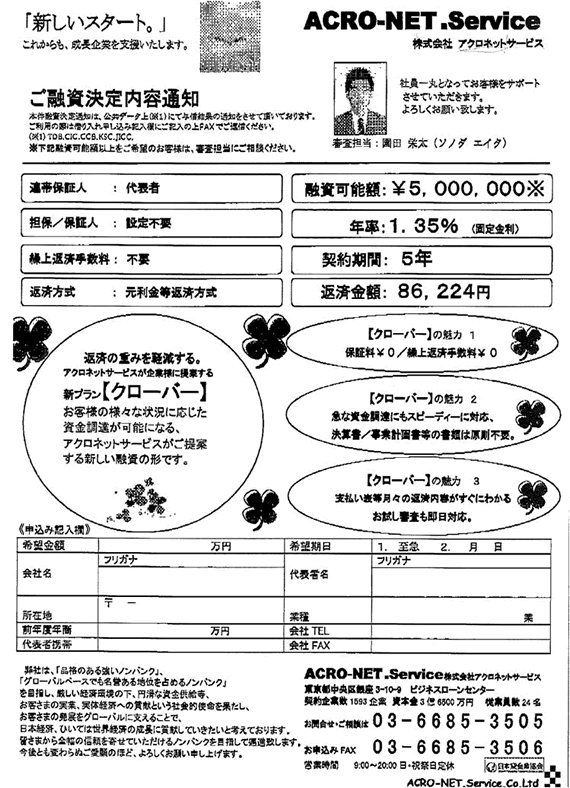 「新しいスタート。」
これからも、成長企業を支援いたします。
ACRO-NET.Service
株式会社 アクロネットサービス
社員一丸となってお客様をサポート
させていただきます。
よろしくお願い致します。
審査担当：園田 栄太（ソノダ エイタ）
ご融資決定内容通知
本件融資決定通知は、公共データ上(※1)にて与信結果の通知をさせて頂いております。
ご利用の際は借り入れ申し込み記入欄にご記入の上FAXでご返信ください。
(※1) TDB.CIC.CCB.KSC.JICC.
※下記融資可能額以上をご希望のお客様は、審査担当にご相談ください。
連帯保証人 ： 代表者
融資可能額：￥5,000,000※
担保／保証人 ： 設定不要
年率：1.35% （固定金利）
繰上返済手数料 ： 不要
契約期間： 5年
返済方式 ： 元利金等返済方式
返済金額：86,224円
返済の重みを軽減する。
アクロネットサービスが企業様に提案する
新プラン【クローバー】
お客様の様々な状況に応じた
資金調達が可能になる、
アクロネットサービスがご提案
する新しい融資の形です。
【クローバー】の魅力 1
保証料￥0／繰上返済手数料￥0
【クローバー】の魅力 2
急な資金調達にもスピーディーに対応、
決算書／事業計画書等の書類は原則不要。
【クローバー】の魅力 3
支払い表等月々の返済内容がすぐにわかる
お試し審査も即日対応。
《申込み記入欄》
希望金額 万円 希望期日 1. 至急 2. 月 日
会社名 フリガナ 代表者名 フリガナ
所在地 〒 ー 業種 業
前年度年商 万円 会社 TEL
代表者携帯 会社 FAX
弊社は、「品格のある強いノンバンク」、
「グローバルベースでも名誉ある地位を占めるノンバンク」
を目指し、厳しい経済環境の下、円滑な資金供給等、
お客さまの実業、実体経済への貢献という社会的使命を果たし、
お客さまの発展をグローバルに支えることで、
日本経済、ひいては世界経済の成長に貢献していきたいと考えております。
皆さまから全幅の信頼を寄せていただけるノンバンクを目指して邁進致します。
今後とも変わらぬご愛顧のほど、よろしくお願い申し上げます。
ACRO-NET.Service株式会社アクロネットサービス
東京都中央区銀座 3-10-9 ビジネスローンセンター
契約企業数 1593 企業 資本金 3 億 6500 万円 従業員数 24 名
お問合せ・ご相談は 03-6685-3505
お申込み FAX 03-6685-3506
営業時間 9:00～20:00 日・祝祭日定休
日本貸金業協会
ACRO-NET.Service.Co.Ltd